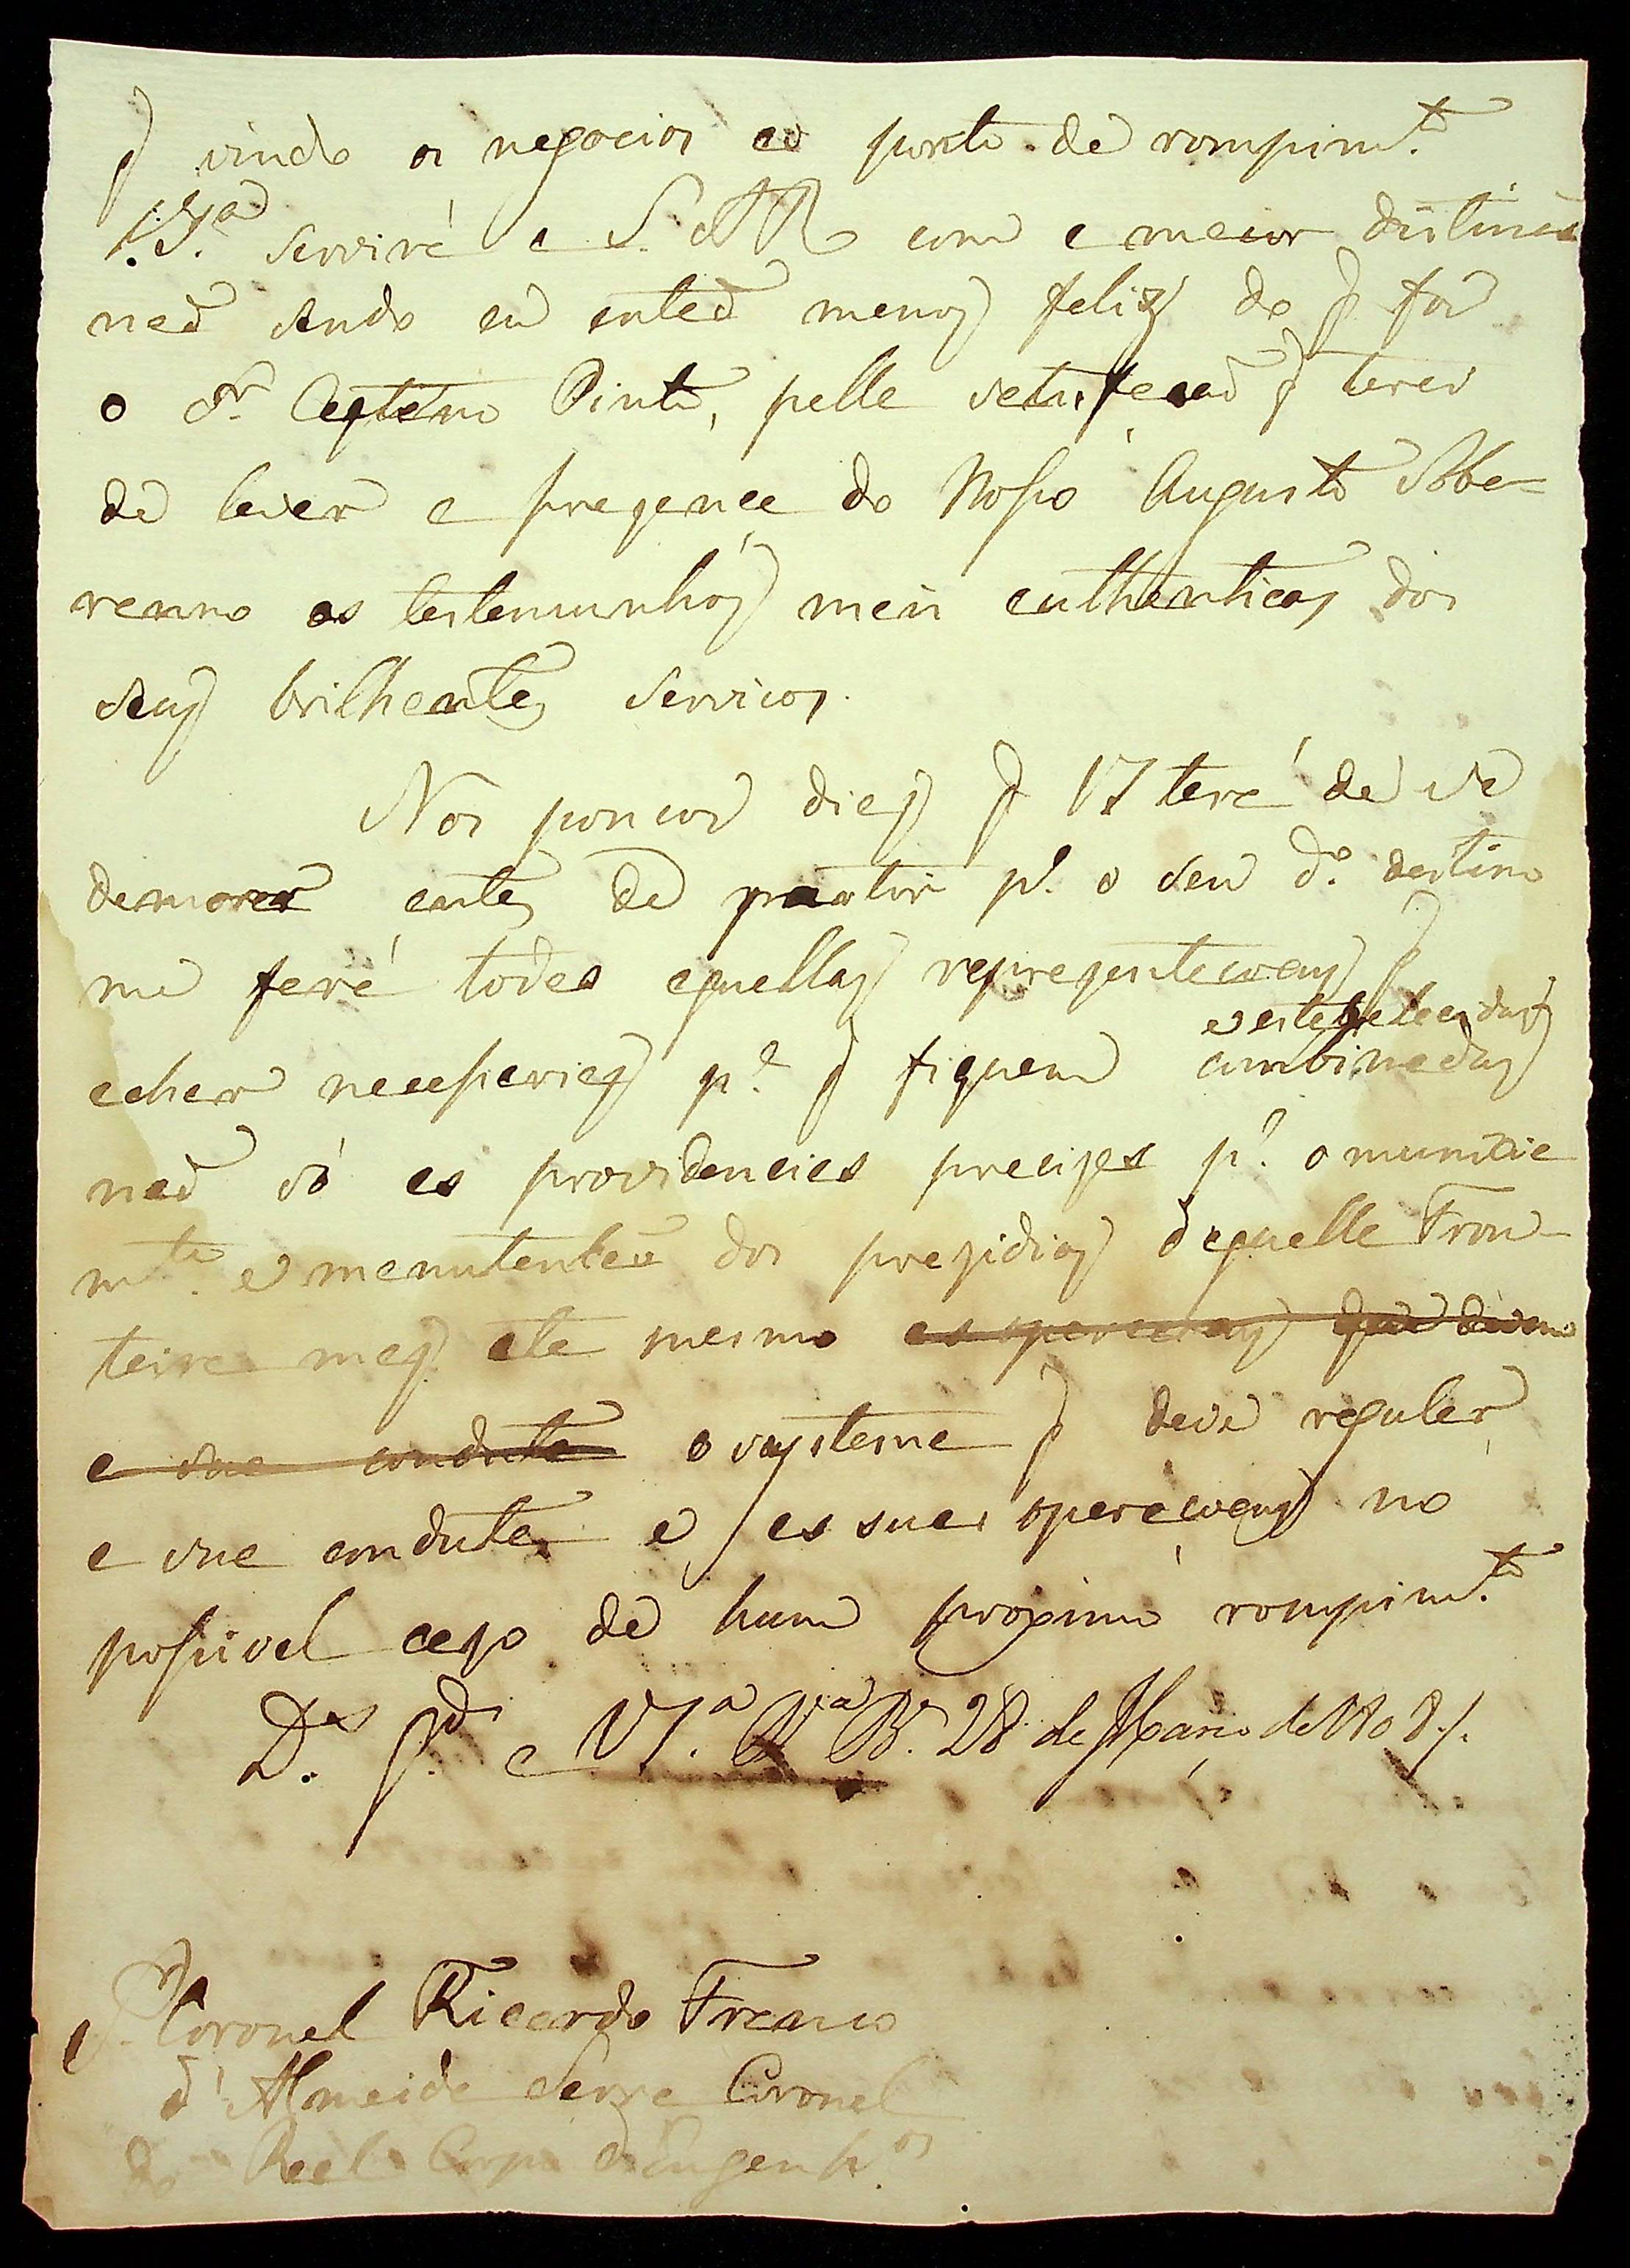 q̃ vindo os negocios ao ponto de rompim.to
V.S.a servirá a S. A R com a maior distinção
naõ sendo eu entaõ menos feliz do q̃ foi
o Sr. Caetano Pinto, pella satisfaçaõ q̃ terei
de levar a prezença do Nosso Augusto Sobe-
ranno os testemunhos mais authenticos dos
seus brilhantes serviços.
Nos poucos dias q̃ VS terá de se
demorar antes de partir p.a o seu d.o destino
me fará todas aquellas reprezentaçoens q̃
e estabelecidas
achar necessarias p.a q̃ fiquem combinadas
naõ só as providencias precizas p.a o municia
m.to e manutençaõ dos prezidios daquella Fron-
teira mas até mesmo as operaçoens que devem
a sua conduta o systema q̃ deve regular
a sua conduta e as suas operaçoens no
possivel cazo de hum proximo rompim.to
D.s g.de a VS.a V.a B.a 28 de Março de 1808./.
Sr. Coronel Ricardo Franco
d'Almeida Serra Coronel
do Real Corpo d'Engenh.os